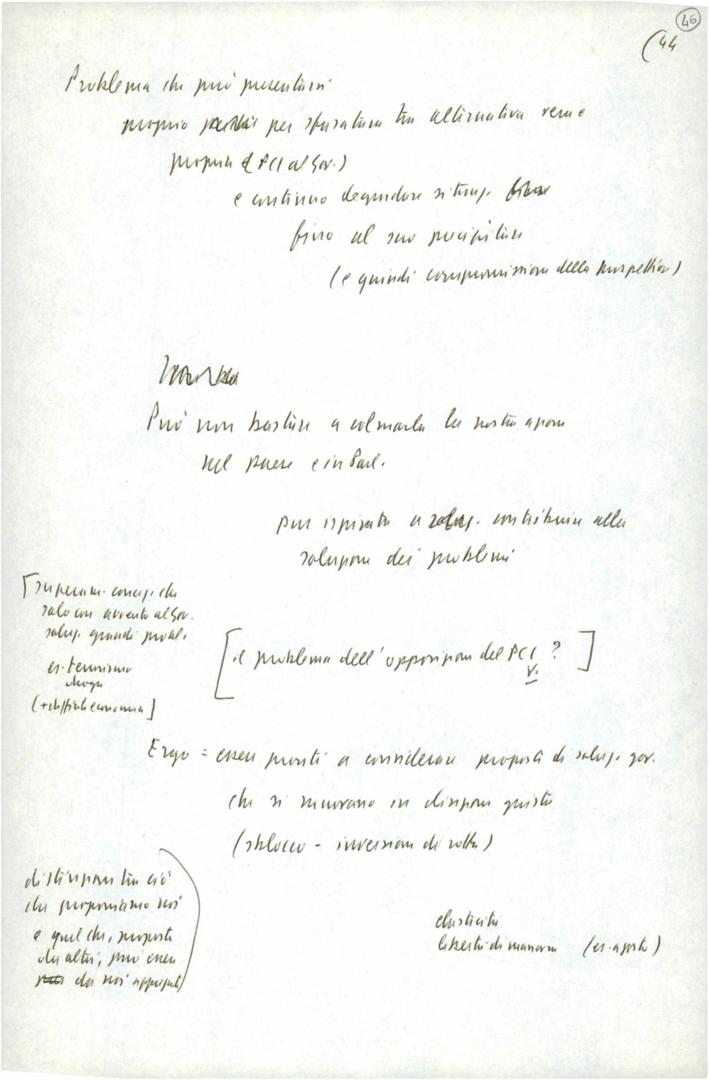 46
(44
Problema che può presentarsi
proprio per sfasatura tra alternativa vera e
propria (PCI al Gov.)
e continuo degradare situaz.
fino al suo precipitare
(e quindi compromissione della prospettiva)
Può non bastare a colmarla la nostra azione
nel paese e in Parl.
pur ispirata a contribuire alla
soluzione dei problemi
[superare concez. che
solo con avvento al Gov.
soluz. grandi probl.
es. terrorismo
droga
(+ diffic. economia)]
[il problema dell'opposizione del PCI ?]
V.
Ergo = essere pronti a considerare proposte di soluz. gov.
che si muovano in direzione giusta
(sblocco - inversione di rotta)
distinzione tra ciò
che proponiamo noi
e quel che, proposto
da altri, può essere
da noi appoggiato
elasticità
libertà di manovra (es. agosto)